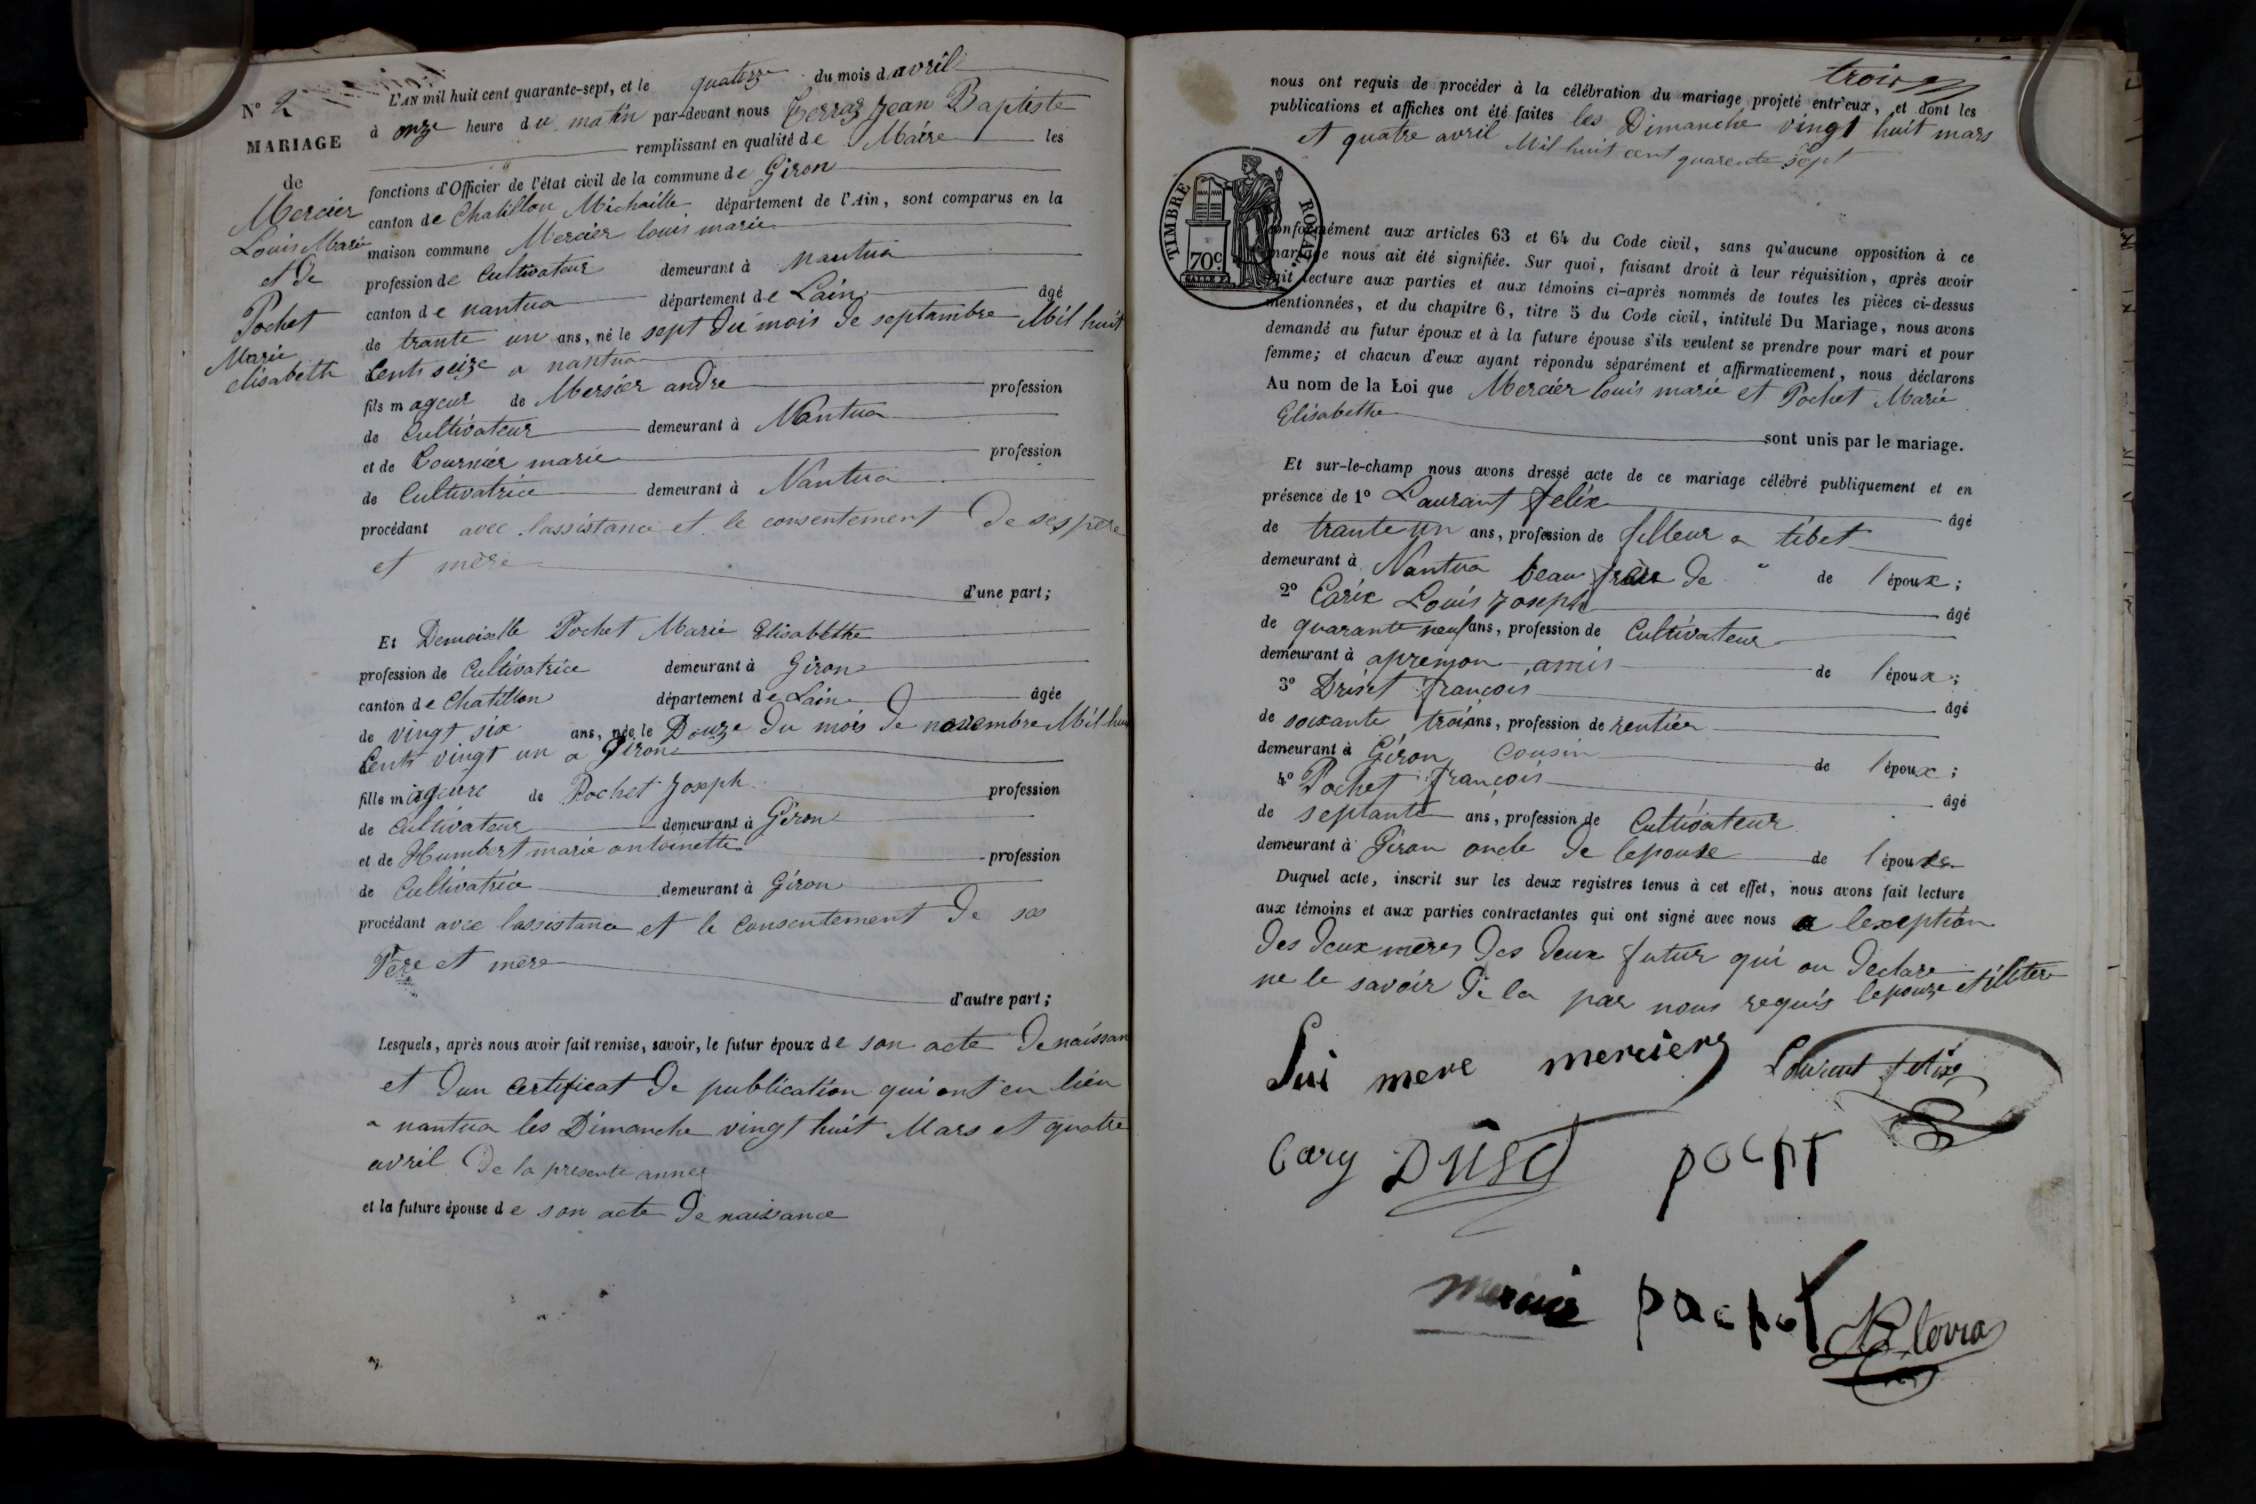 N.º 2
MARIAGE
de
Mercier
Louis Marie
et de
Pochet
Marie
elisabeth
L'AN mil huit cent quarante-sept, et le quatorze du mois d'avril
à onze heure du matin par-devant nous Terraz Jean Baptiste
remplissant en qualité de Maire les
fonctions d'Officier de l'état civil de la commune de Giron
canton de Chatillon Michaille département de l'Ain, sont comparus en la
maison commune Mercier louis marie
profession de Cultivateur demeurant à Nantua
canton de nantua département de Lain âgé
de trante un ans, né le sept du mois de septambre Mil huit
Cents seize a nantua
fils mageur de Mersier andre profession
de Cultivateur demeurant à Nantua
et de Cournier marie profession
de Cultivatrice demeurant à Nantua
procédant avec lassistance et le consentement de ses père
et mère
d'une part;
Et Demoiselle Pochet Marie Elisabethe
profession de Cultivatrice demeurant à Giron
canton de Chatillon département de Lain âgée
de vingt six ans, née le Douze du mois de novembre Mil huit
Cents vingt un a Giron
fille mageure de Pochet Joseph profession
de Cultivateur demeurant à Giron
et de Humbert marie antoinette profession
de Cultivatrice demeurant à Giron
procédant avec lassistance et le Consentement de ses
Père et mère
d'autre part;
Lesquels, après nous avoir fait remise, savoir, le futur époux de son acte de naissan
et dun certificat de publication qui ont eu lieu
a nantua les Dimanche vingt huit Mars et quatre
avril de la presente année
et la future épouse de son acte de naissance
trois
nous ont requis de procéder à la célébration du mariage projeté entr'eux, et dont les
publications et affiches ont été faites les Dimanche vingt huit mars
et quatre avril Mil huit cent quarente sept
TIMBRE ROYAL
70c
conformément aux articles 63 et 64 du Code civil, sans qu'aucune opposition à ce
mariage nous ait été signifiée. Sur quoi, faisant droit à leur réquisition, après avoir
fait lecture aux parties et aux témoins ci-après nommés de toutes les pièces ci-dessus
mentionnées, et du chapitre 6, titre 5 du Code civil, intitulé Du Mariage, nous avons
demandé au futur époux et à la future épouse s'ils veulent se prendre pour mari et pour
femme; et chacun d'eux ayant répondu séparément et affirmativement, nous déclarons
Au nom de la Loi que Mercier louis marie et Pochet Marie
Elisabethe
sont unis par le mariage.
Et sur-le-champ nous avons dressé acte de ce mariage célébré publiquement et en
présence de 1º Laurant felix âgé
de trante un ans, profession de filleur a tibet
demeurant à Nantua beau frère de de l'époux;
2º Carix Louis Joseph âgé
de quarante neuf ans, profession de Cultivateur
demeurant à apremon amis de l'époux;
3º Driset françois âgé
de soixante trois ans, profession de rentier
demeurant à Giron Cousin de l'époux;
4º Pochet françois âgé
de septante ans, profession de Cultivateur
demeurant à Giron oncle de lepouse de l'épouse
Duquel acte, inscrit sur les deux registres tenus à cet effet, nous avons fait lecture
aux témoins et aux parties contractantes qui ont signé avec nous a lexeption
des deux mères des deux futur qui on declare
ne le savoir de la par nous requis lepouze et illitere
Lui mere mercier
Laurent felix
Cary
pochet
mercier pochet